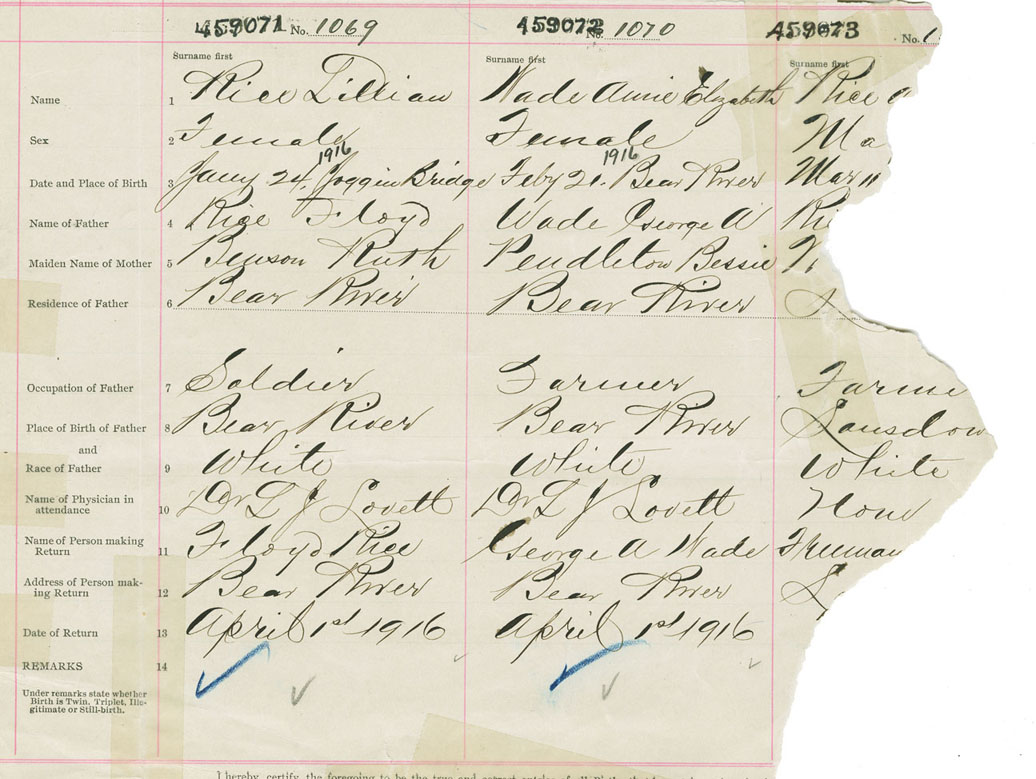 459071 No. 1069 459072 No. 1070 459073 No. 1
Surname first Surname first Surname first
Name 1 Rice Lillian Wade Annie Elizabeth Rice
Sex 2 Female Female Ma
1916 1916
Date and Place of Birth 3 Jany 24. Joggin Bridge Feby 21. Bear River Mar 11
Name of Father 4 Rice Floyd Wade George A Ri
Maiden Name of Mother 5 Benson Ruth Pendleton Bessie
Residence of Father 6 Bear River Bear River
Occupation of Father 7 Soldier Farmer Farme
Place of Birth of Father 8 Bear River Bear River Lansdow
and
Race of Father 9 White White White
Name of Physician in
attendance 10 Dr L J Lovett Dr L J Lovett
Name of Person making
Return 11 Floyd Rice George A Wade Freeman
Address of Person mak-
ing Return 12 Bear River Bear River L
Date of Return 13 April 1st 1916 April 1st 1916
REMARKS 14
Under remarks state whether
Birth is Twin, Triplet, Ille-
gitimate or Still-birth.
I hereby certify the foregoing to be the true and correct entries of all Births